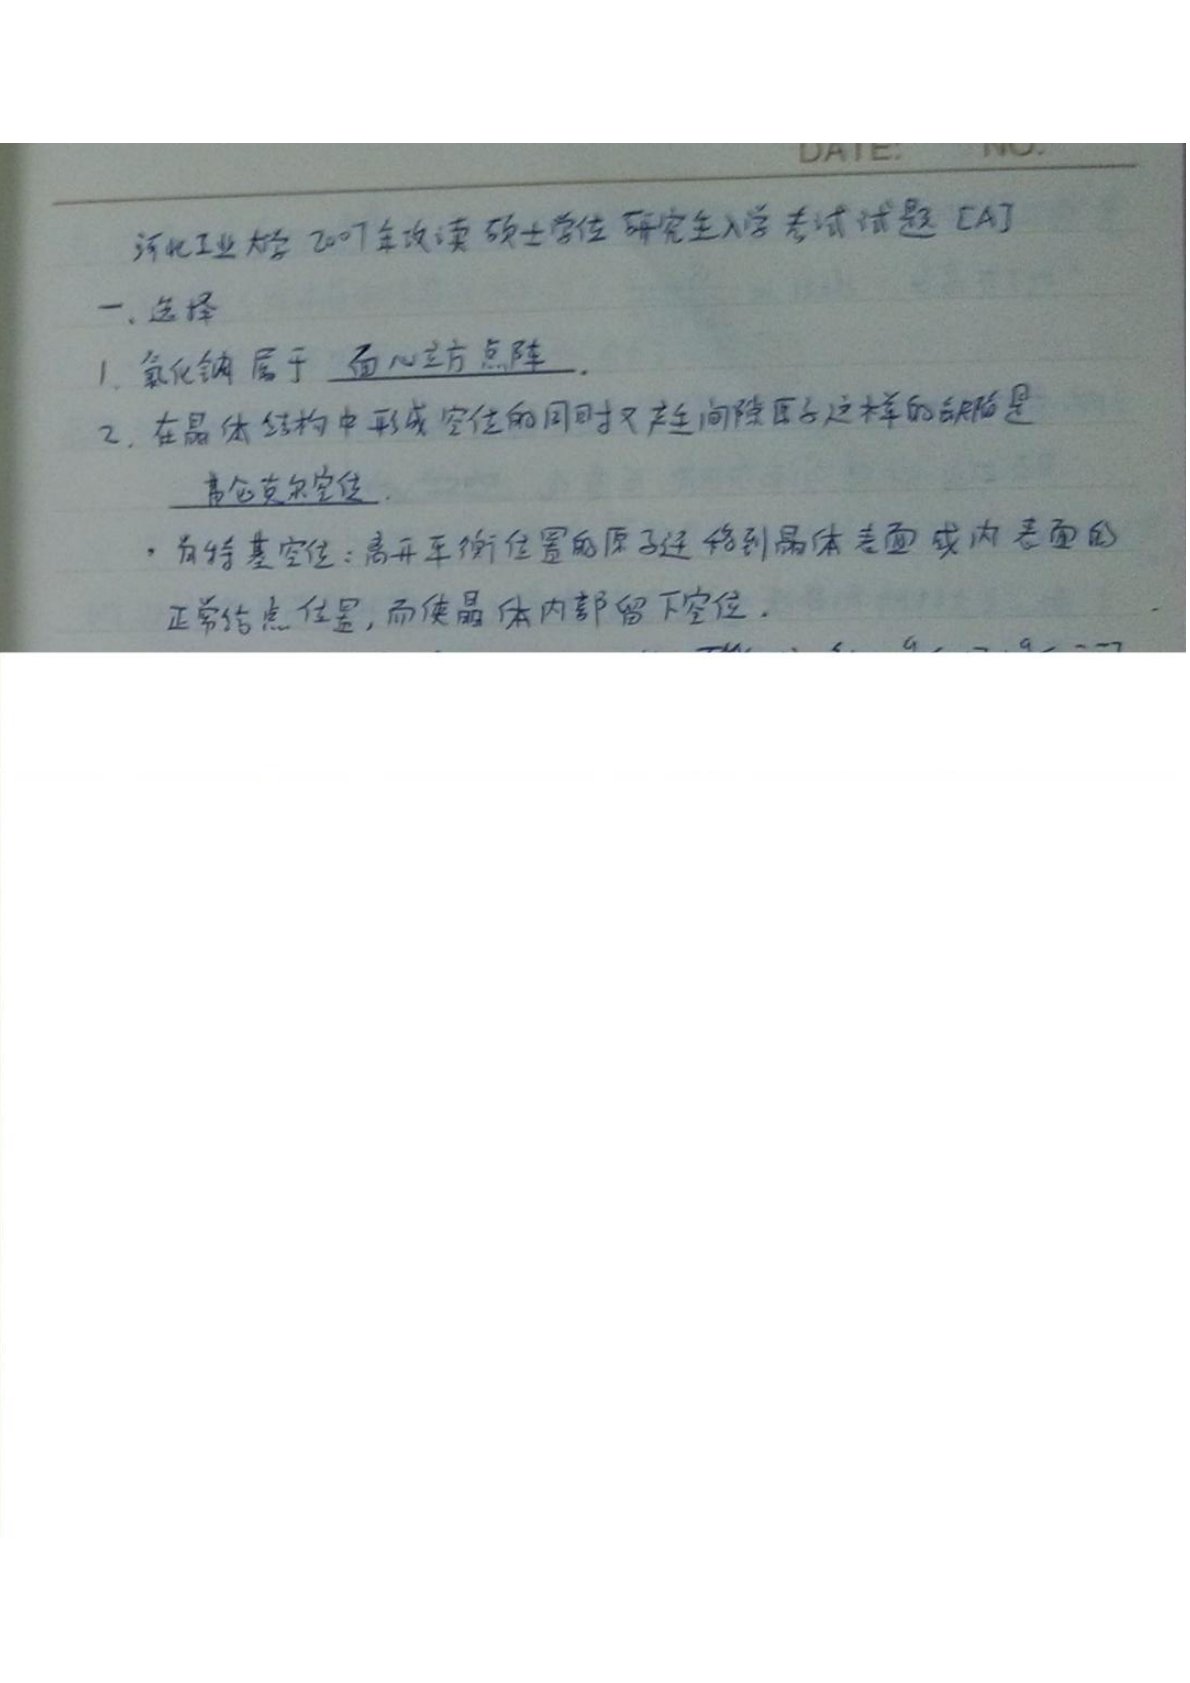 DATE: NO.
河北工业大学 2007年攻读硕士学位研究生入学考试试题 [A]
一、选择
1. 氯化钠属于 面心立方点阵.
2. 在晶体结构中形成空位的同时又产生间隙原子这样的缺陷是
弗仑克尔空位.
· 肖特基空位:离开平衡位置的原子迁移到晶体表面或内表面的
正常结点位置,而使晶体内部留下空位.